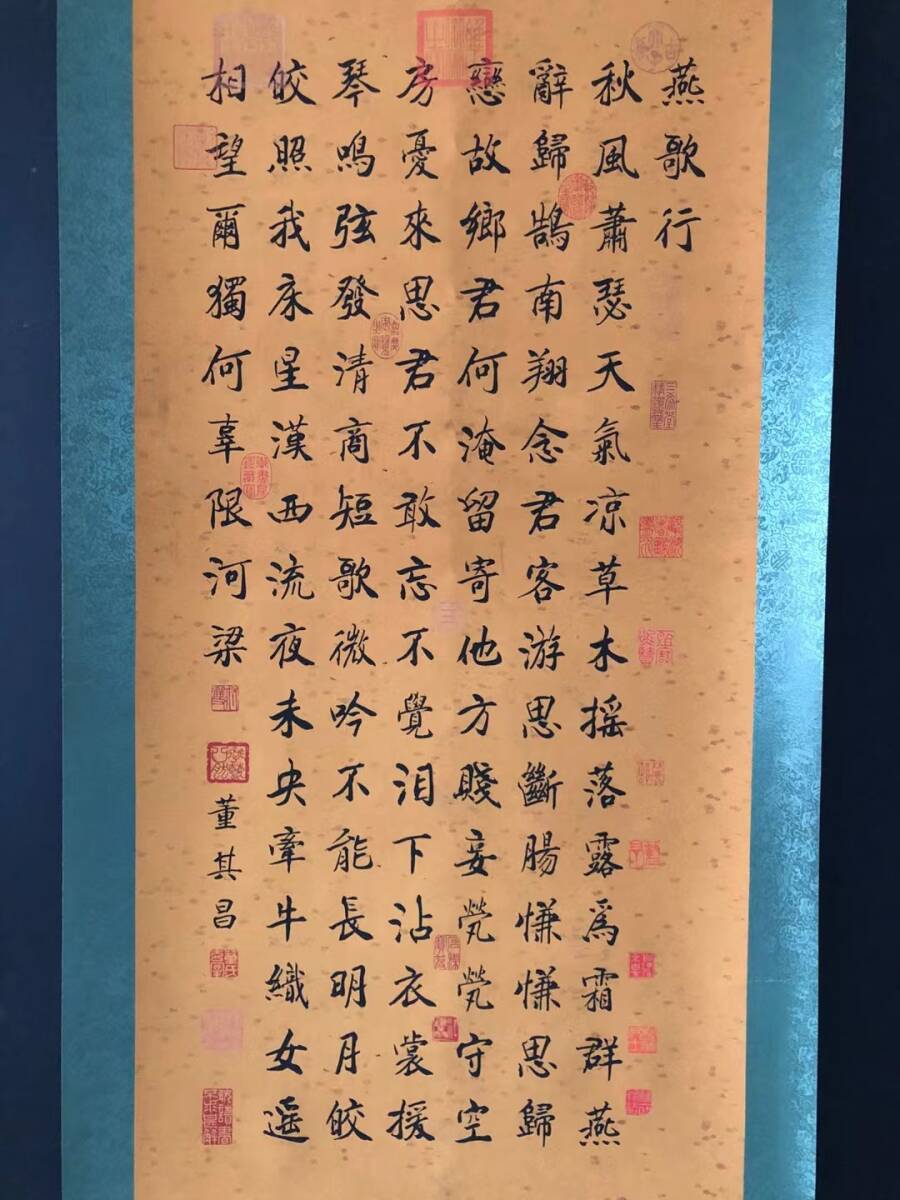 燕歌行
秋風蕭瑟天氣凉草木摇落露爲霜群燕
辭歸鵠南翔念君客游思斷腸慊慊思歸
戀故鄉君何淹留寄他方賤妾煢煢守空
房憂來思君不敢忘不覺泪下沾衣裳援
琴鳴弦發清商短歌微吟不能長明月皎
皎照我床星漢西流夜未央牽牛織女遥
相望爾獨何辜限河梁
董其昌